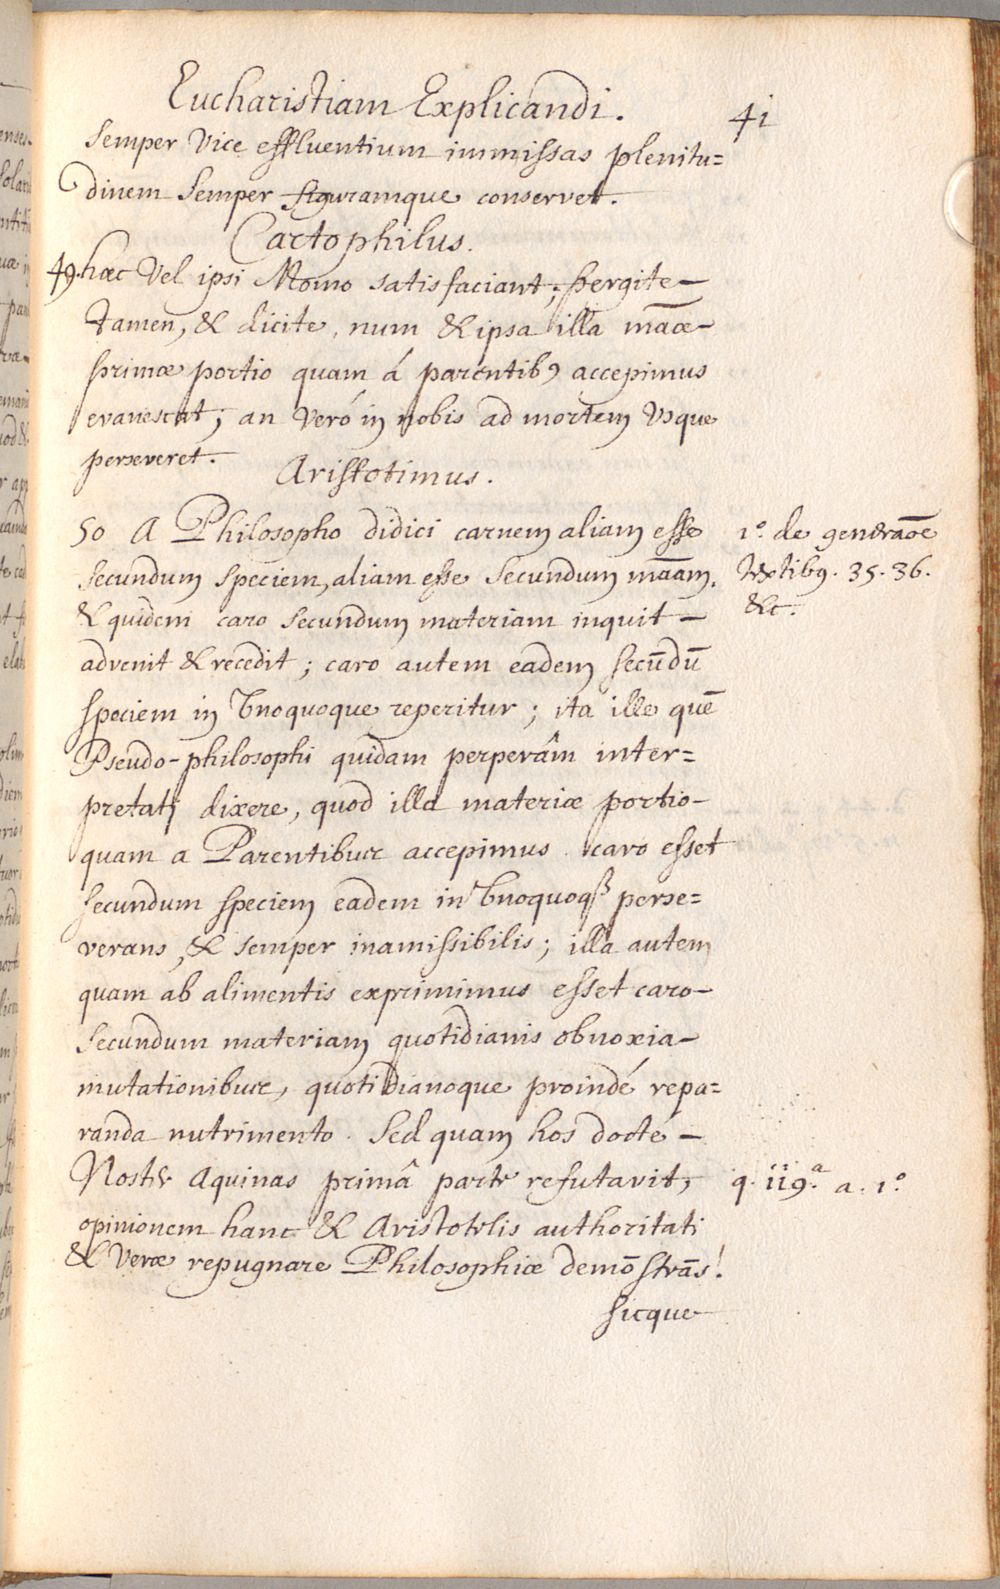 Eucharistiam Explicandi.
41
semper Vice effluentium immissas plenitu=
dinem semper figuramque conservet.
Cartophilus.
49. hæc Vel ipsi Momo satisfaciant; pergite
tamen, & dicite, num & ipsa illa mãæ
primæ portio quam á parentibꝰ accepimus
evanescat; an veró in nobis ad mortem Usque
perseveret.
Aristotimus.
50 A Philosopho didici carnem aliam esse
secundum speciem, aliam esse secundum mãam,
& quidem caro secundum materiam inquit
advenit & recedit; caro autem eadem secũdũ
speciem in Unoquoque reperitur; ita ille quẽ
Pseudo-philosophi quidam perperâm inter=
pretati dixere, quod illa materiæ portio
quam a Parentibus accepimus caro esset
secundum speciem eadem in Unoquoqꝫ perse=
verans, & semper inamissibilis; illa autem
quam ab alimentis exprimimus esset caro
secundum materiam quotidianis obnoxia
mutationibus, quotidianoque proindé repa=
randa nutrimento. Sed quam hos docté
Noster Aquinas primâ parte refutavit,
opinionem hanc & Aristotelis authoritati
& Veræ repugnare Philosophiæ demõstrãs!
sicque
1.º de generãoẽ
textibꝰ. 35. 36.
&c.
q. 119.ª a. 1.º